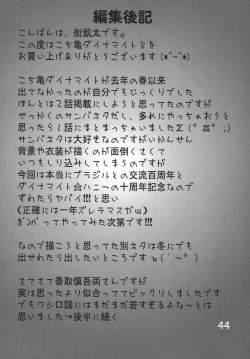 編集後記
こんばんは、街凱太です。
この度はこち亀ダイナマイト8を
お買い上げありがとうございます(*^-^*)
こち亀ダイナマイトが去年の春以来
出てなかったのが自分でもびっくりでした
ほんとは2話掲載にしようと思ってたのですが
せっかくのサンバネタだし、多めにやっちゃおうと
思ったら1話にまとまっちゃいましたΣ(゜Д゜;)
サンバネタは大好きなのですがいかんせん
背景や衣装が描くのが面倒くさくて
いつもしり込みしてしまうのですが
今回は本当にブラジルとの交流百周年と
ダイナマイト☆ハニーの十周年記念なので
ずれたらヤバイ!!!と思い
(正確には一年ズレテマスガw)
ガンバってやってみた次第です!!!
なので描こうと思ってた別ネタは冬にでも
出せれたら出したいところです
さてさて香取慎吾両さんですが
実は思ったより似合っててビックリしましたです
でもワシ口調にはまだまだ若すぎるよな~とは
思いました→後半に続く
44